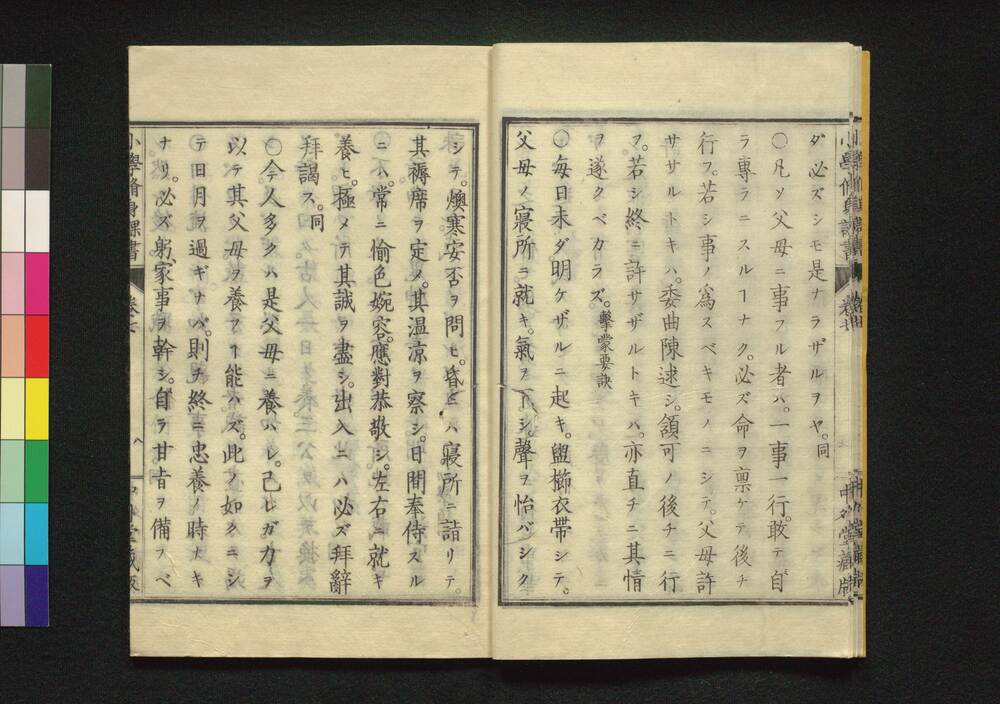 ダ必ズシモ是ナラザルヲヤ。同
〇凡ソ父母ニ事フル者ハ。一事一行。敢テ自
ラ專ラニスルヿナク。必ズ命ヲ禀ケテ後チ
行フ。若シ事ノ爲スベキモノニシテ。父母許
ササルトキハ。委曲陳逑シ。領可ノ後チニ行
フ。若シ終ニ許サザルトキハ。亦直チニ其情
ヲ遂クベカラズ。擊蒙要訣
〇每日未ダ。明ケザルニ起キ。盥櫛衣帶シテ。
父母ノ寢所ニ就キ。氣ヲ下シ。聲ヲ怡バシク
シテ。燠寒安否ヲ問ヒ。昏ニハ寢所ニ詣リテ。
其褥席ヲ定メ。其温凉ヲ察シ。日間奉侍スル
ニハ常ニ愉色婉容。應對恭敬シ。左右ニ就キ
養ヒ。極メテ其誠ヲ盡シ。出入ニハ必ズ拜辭
拜謁ス。同
〇今人多クハ是父母ニ養ハレ。己レガ力ヲ
以テ其父母ヲ養フヿ能ハズ。此ノ如クニシ
テ日月ヲ過ギナバ。則チ終ニ忠養ノ時ナキ
ナリ。必ズ躬家事ヲ幹シ。自ラ甘旨ヲ備フベ
小學脩身課書
卷七
八